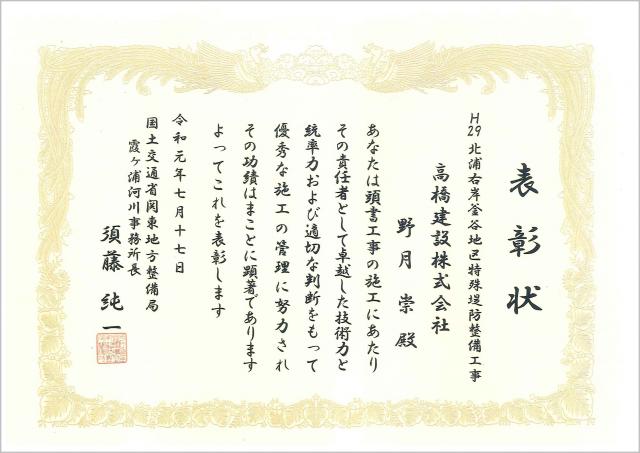 表彰状
H29 北浦右岸釜谷地区特殊堤防整備工事
高橋建設株式会社
野月崇殿
あなたは頭書工事の施工にあたり
その責任者として卓越した技術力と
統率力および適切な判断をもって
優秀な施工の管理に努力され
その功績はまことに顕著であります
よってこれを表彰します
令和元年七月十七日
国土交通省関東地方整備局
霞ヶ浦河川事務所長
須藤純一